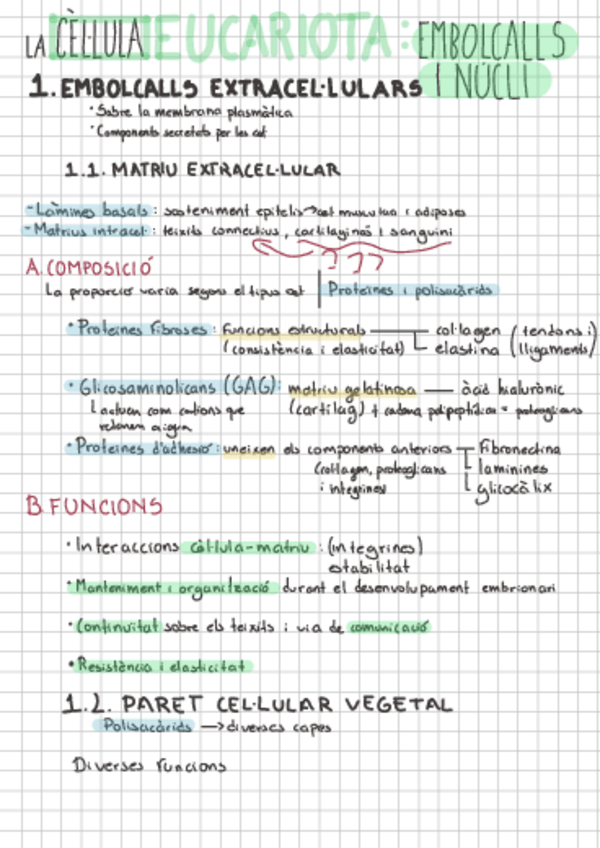 LA CÈL·LULA EUCARIOTA: EMBOLCALLS
I NUCLI
1. EMBOLCALLS EXTRACEL·LULARS
· Sobre la membrana plasmàtica
· Components secretats per les cèl
1.1. MATRIU EXTRACEL·LULAR
- Làmines basals: sosteniment epitelis → cèl musculua i adiposes
- Matrius intracel: teixits connectius, cartilaginós i sanguini
???
A. COMPOSICIÓ
La proporció varia segons el tipus cèl | Proteïnes i polisacàrids
· Proteïnes fibroses: funcions estructurals — col·lagen (tendons i
(consistència i elasticitat) elastina lligaments)
· Glicosaminolicans (GAG): matriu gelatinosa — àcid hialurònic
actuen com cations que (cartílag) + cadena polipeptídica =
retenen aigua
· Proteïnes d'adhesió: uneixen els components anteriors fibronectina
(col·lagen, proteoglicans laminines
i integrines) glicocàlix
B. FUNCIONS
· Interaccions cèl·lula-matriu: (integrines)
estabilitat
· Manteniment i organització durant el desenvolupament embrionari
· Continuïtat sobre els teixits i via de comunicació
· Resistència i elasticitat
1.2. PARET CEL·LULAR VEGETAL
Polisacàrids → diverses capes
Diverses funcions